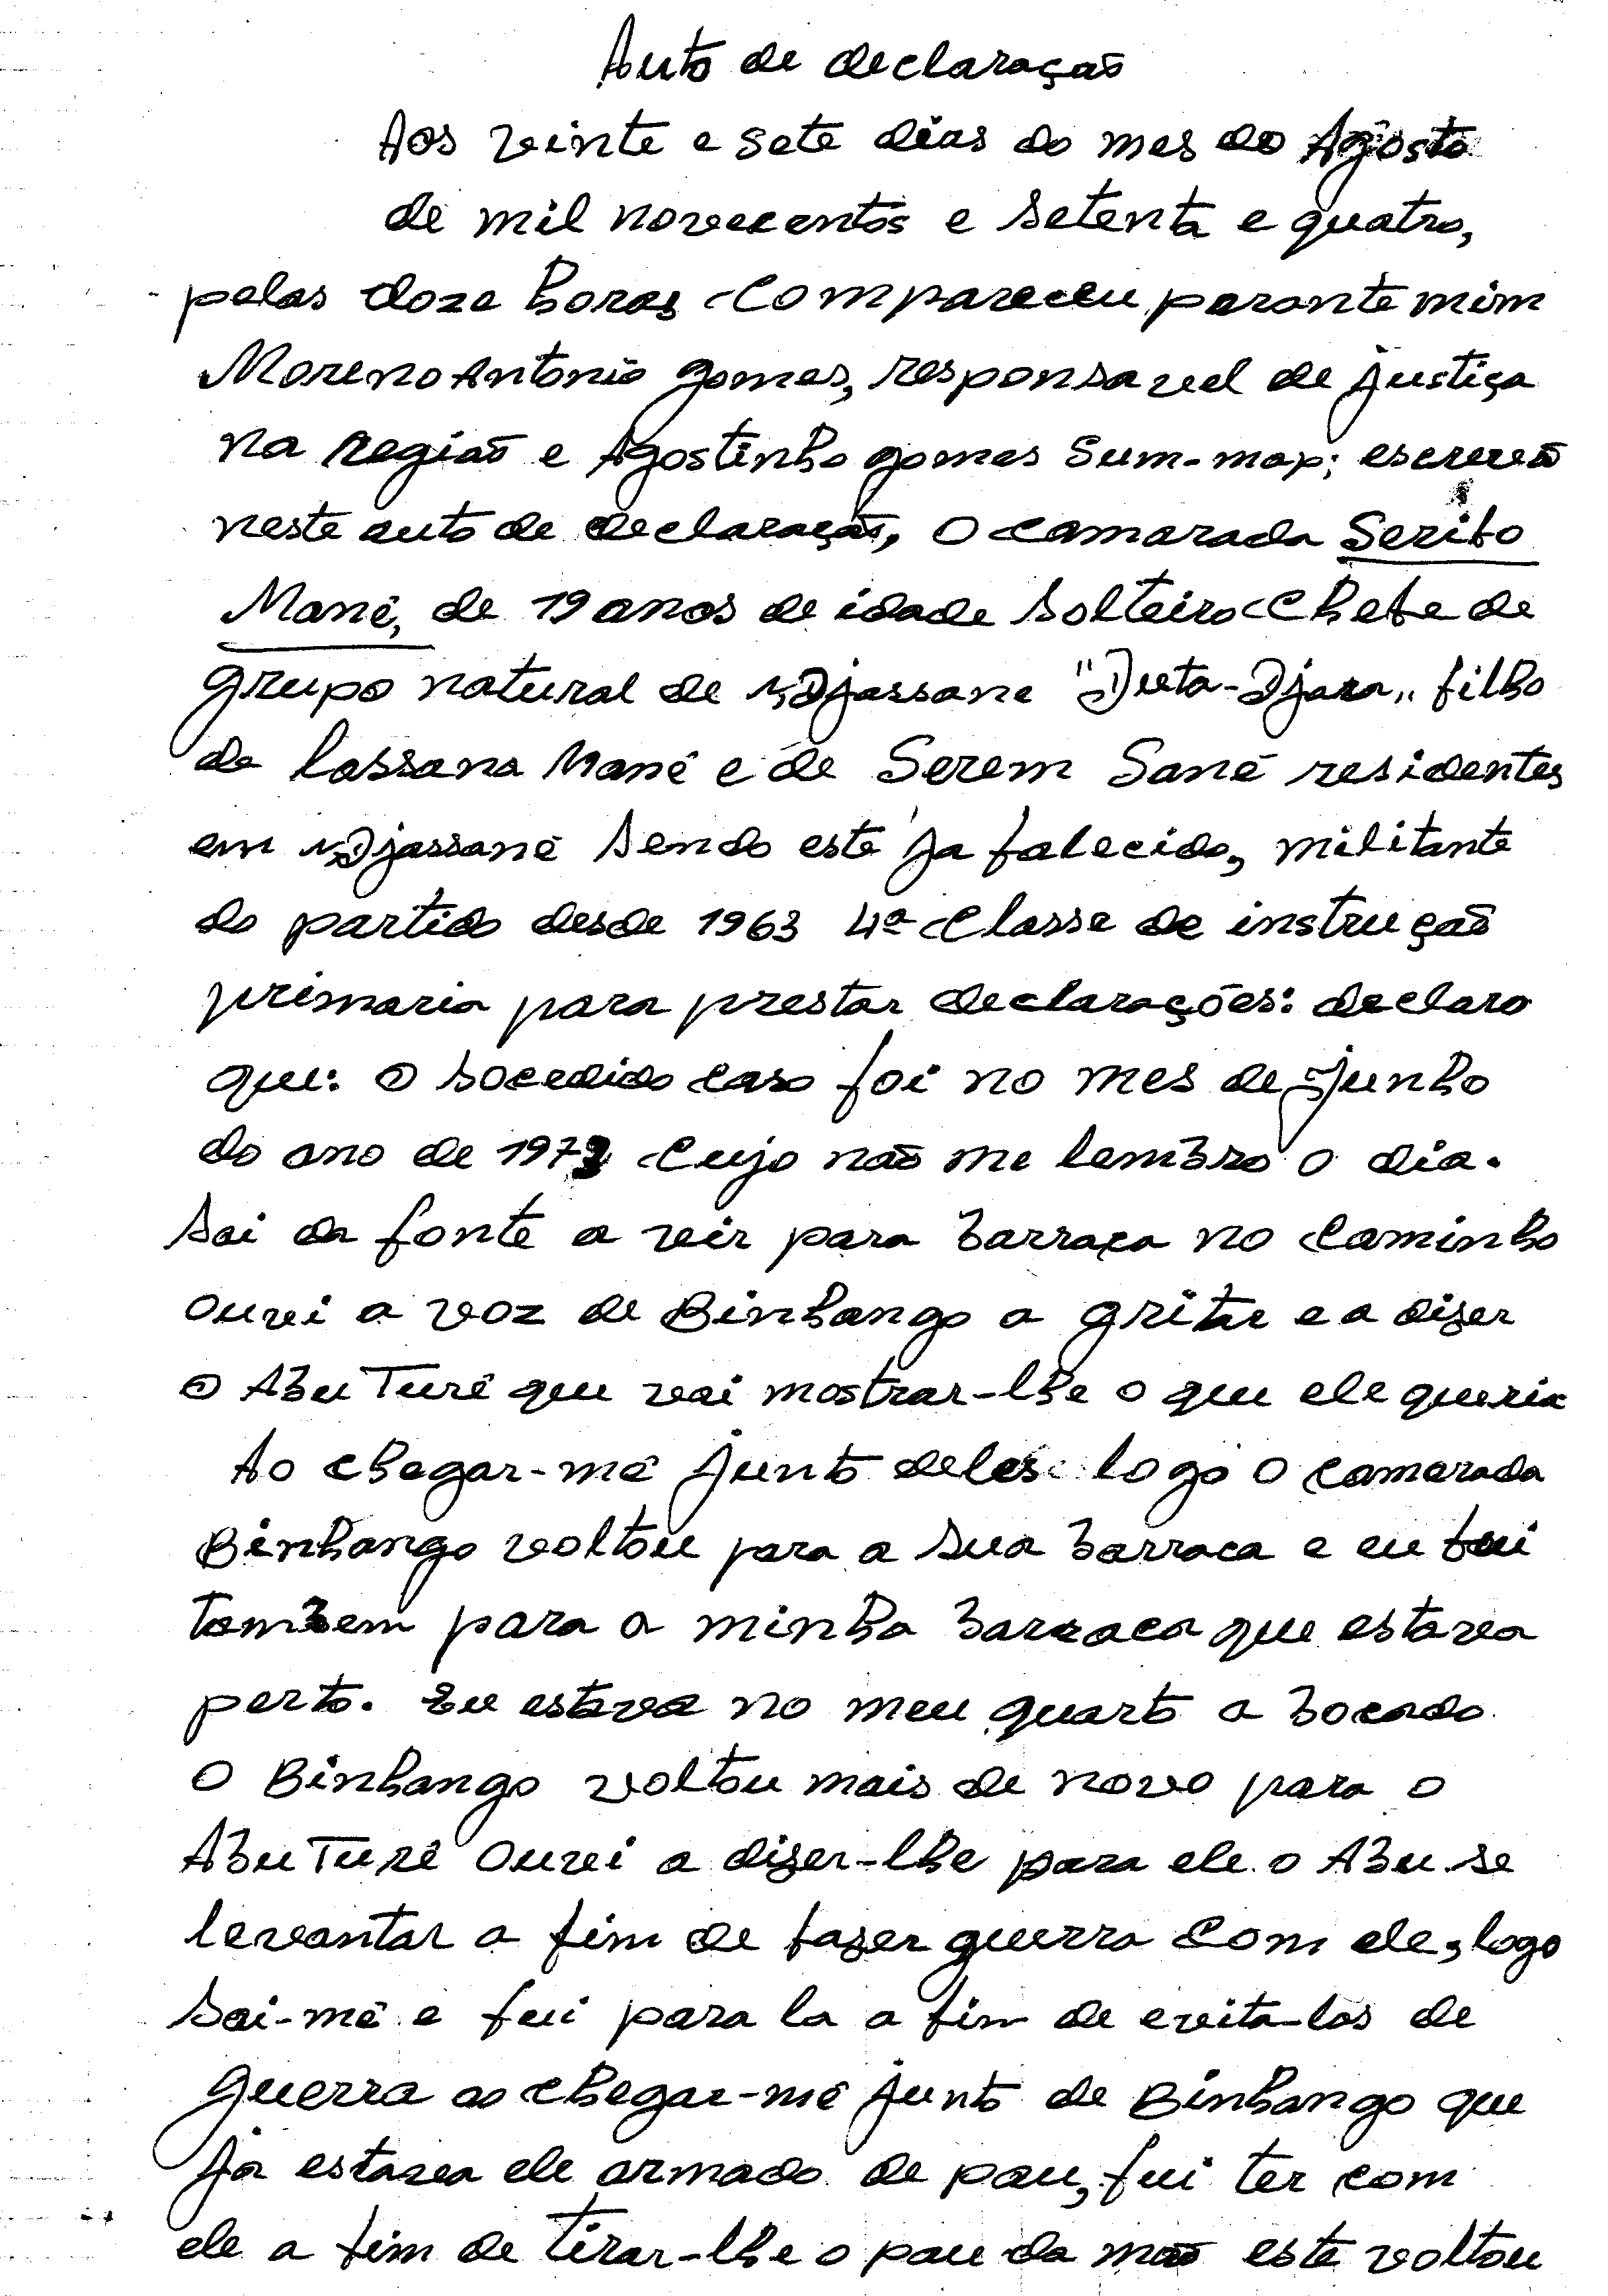 Auto de declaração
Aos vinte e sete dias do mes do Agosto
de mil novecentos e setenta e quatro,
pelas doze horas compareceu perante mim
Moreno Antonio Gomes, responsavel de justiça
na região e Agostinho gomes Sum-map; escrevão
neste auto de declaração, o camarada Serifo
Mané, de 19 anos de idade solteiro chefe de
grupo natural de N,Djassane "Juta-Djara" filho
de Lassana Mané e de Serem Sané residentes
em N,Djassané sendo este ja falecido, militante
do partido desde 1963 4ª classe de instrução
primaria para prestar declarações: declaro
que: o socedido caso foi no mes de junho
do ano de 1973 cujo não me lembro o dia.
Sai da fonte a vir para barraca no caminho
ouvi a voz de Binhango a gritar e a dizer
o Abu Turé que vai mostrar-lhe o que ele queria
Ao chegar-mé junto deles logo o camarada
Binhango voltou para a sua barraca e eu fui
tombem para a minha barraca que estava
perto. Eu estava no meu quarto a bocado
O Binhango voltou mais de novo para o
Abu Turé ouvi a dizer-lhe para ele o Abu se
levantar a fim de fazer guerra com ele, logo
sai-mé e fui para la a fim de evita-los de
guerra ao chegar-mé junto de Binhango que
ja estava ele armado de pau, fui ter com
ele a fim de tirar-lhe o pau da mão este voltou